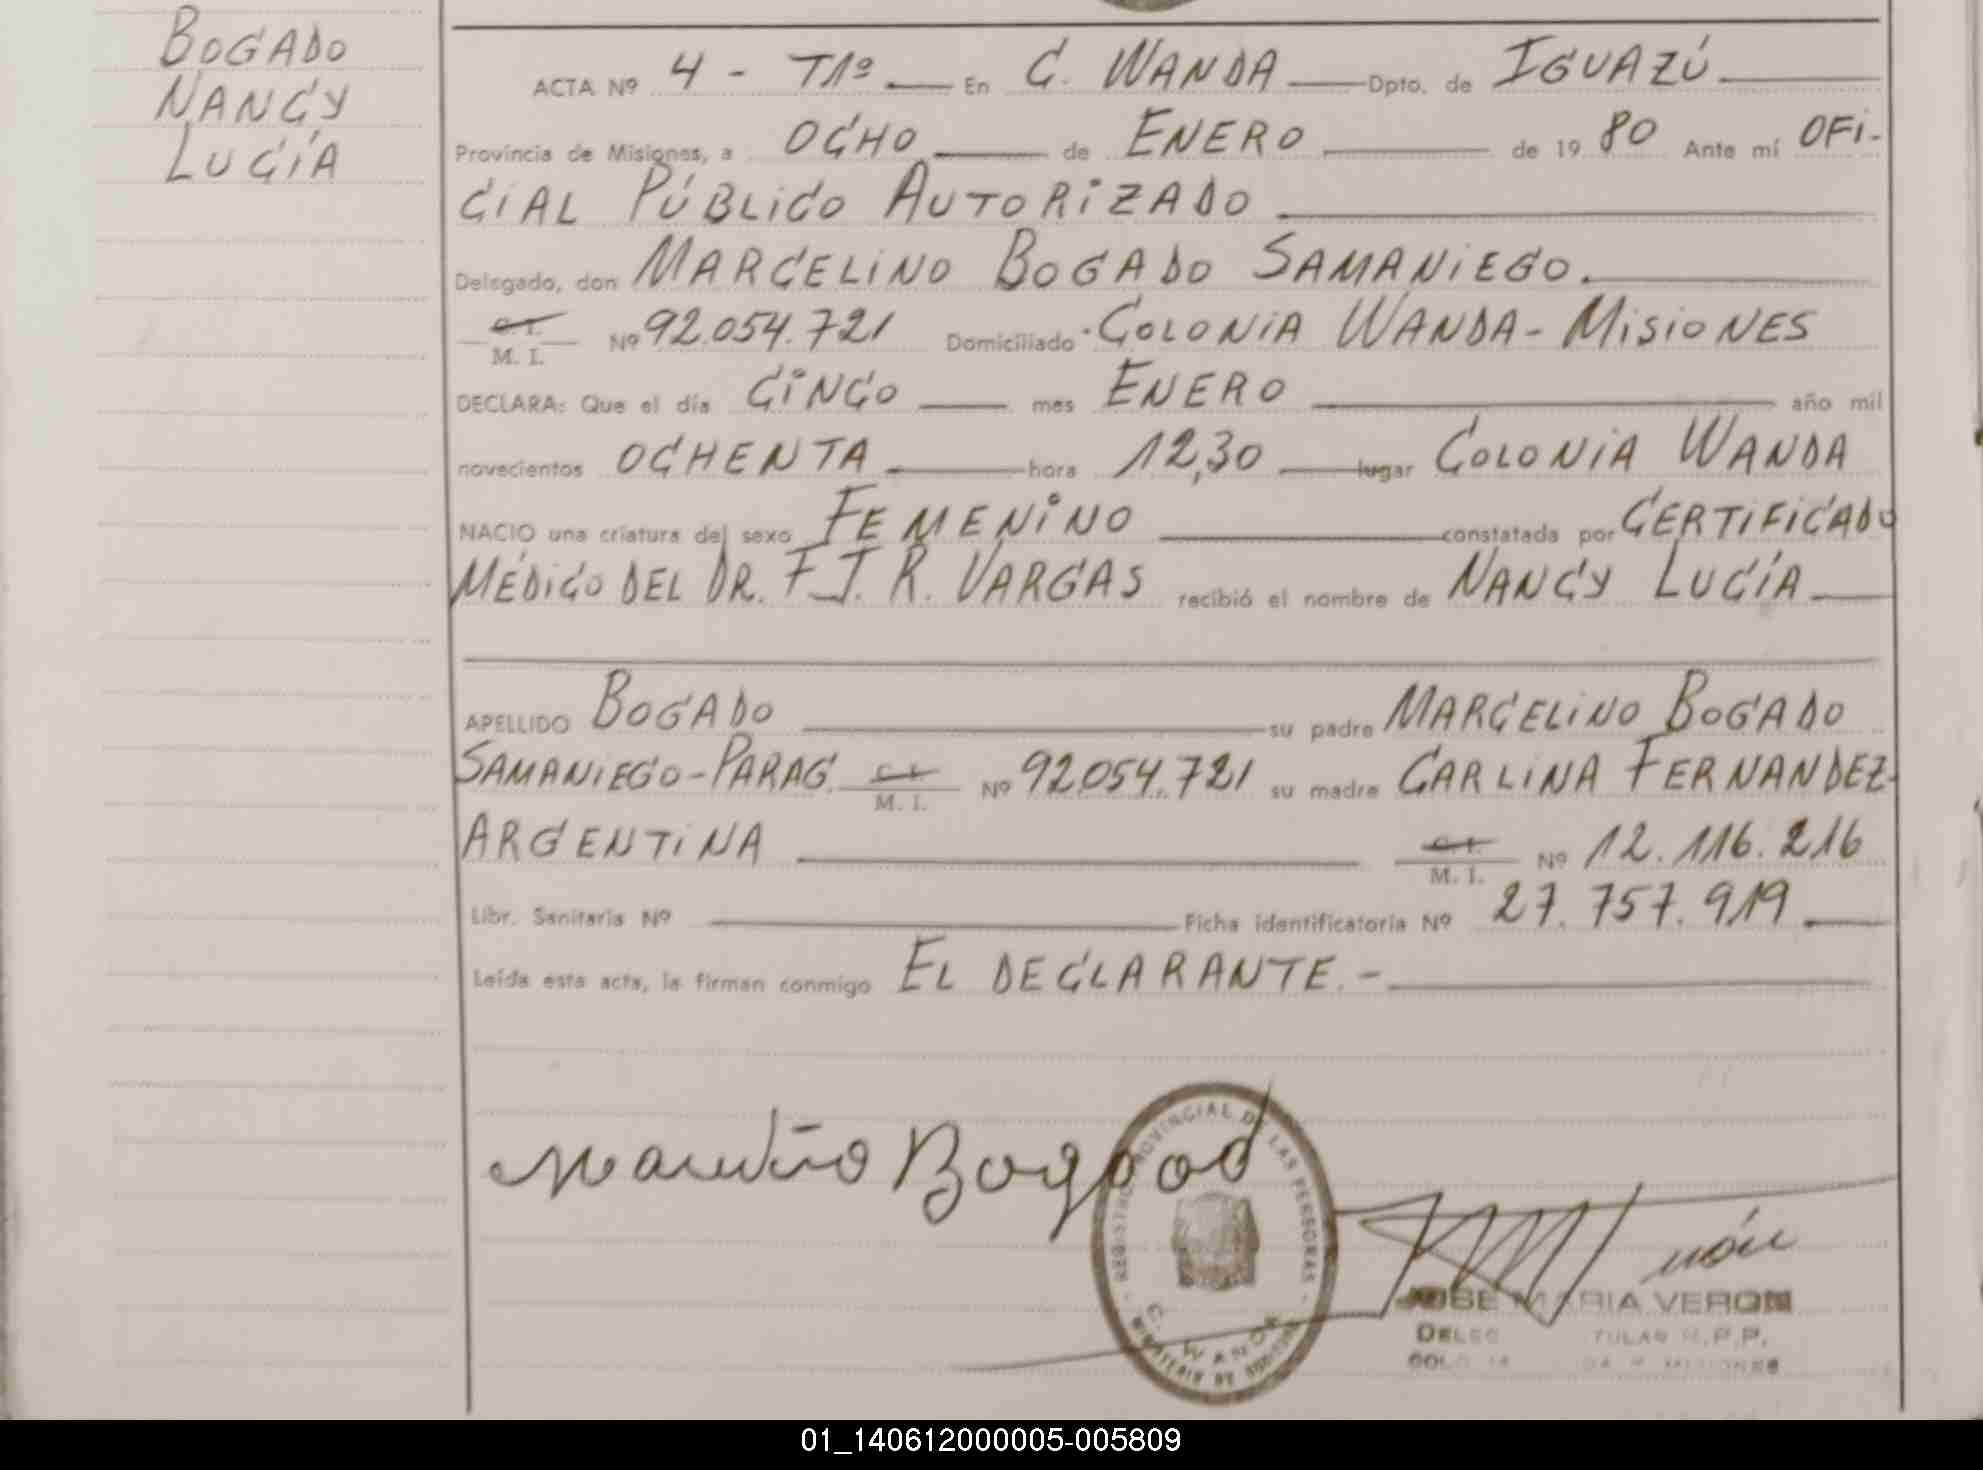 BOGADO
NANCY
LUCÍA
ACTA Nº 4 - T1º En C. WANDA Dpto. de IGUAZÚ
Provincia de Misiones, a OCHO de ENERO de 19 80 Ante mí OFI-
CIAL PÚBLICO AUTORIZADO
Delegado, don MARCELINO BOGADO SAMANIEGO.
C. I.
M. I. Nº 92.054.721 Domiciliado COLONIA WANDA - MISIONES
DECLARA: Que el día CINCO mes ENERO año mil
novecientos OCHENTA hora 12,30 lugar COLONIA WANDA
NACIO una criatura del sexo FEMENINO constatada por CERTIFICADO
MÉDICO DEL DR. F. J. R. VARGAS recibió el nombre de NANCY LUCÍA
APELLIDO BOGADO su padre MARCELINO BOGADO
SAMANIEGO-PARAG. C. I. M. I. Nº 92.054.721 su madre CARLINA FERNANDEZ-
ARGENTINA C. I. M. I. Nº 12.116.216
Libr. Sanitaria Nº Ficha identificatoria Nº 27.757.919
Leída esta acta, la firman conmigo EL DECLARANTE.-
Marcelino Bogado
REGISTRO PROVINCIAL DE LAS PERSONAS
C. WANDA
MINISTERIO DE
JOSE MARIA VERON
01_140612000005-005809